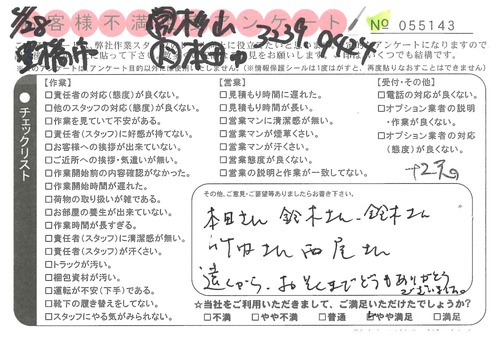 お客様不満足アンケート
No 055143
5/28
3239
□責任者の対応(態度)が良くない。
□他のスタッフの対応(態度)が良くない。
□作業を見ていて不安がある。
□責任者(スタッフ)に好感が持てない。
□お客様への挨拶が出来ていない。
□ご近所への挨拶・気遣いが無い。
□作業開始前の内容確認がなかった。
□作業開始時間が遅れた。
□荷物の取り扱いが雑である。
□お部屋の養生が出来ていない。
□作業時間が長すぎる。
□責任者(スタッフ)に清潔感が無い。
□責任者(スタッフ)が汗くさい。
□トラックが汚い。
□梱包資材が汚い。
□運転が不安(下手)である。
□靴下の履き替えをしてない。
□スタッフにやる気がみられない。
チェックリスト
【作業】
【営業】
□見積もり時間に遅れた。
□見積もり時間が長い。
□営業マンに清潔感が無い。
□営業マンが煙草くさい。
□営業マンが汗くさい。
□営業態度が良くない。
□営業の説明と作業が一致してない。
【受付・その他】
□電話の対応が良くない。
□オプション業者の説明
・作業が良くない。
□オプション業者の対応
(態度)が良くない。
その他、ご意見・ご要望等ありましたらお書き下さい。
本田さん 鈴木さん、鈴木さん
竹内さん 西尾さん
遠くから、おそくまでどうもありがとう
ございました。
☆当社をご利用いただきまして、ご満足いただけたでしょうか?
□不満 □やや不満 □普通 □やや満足 □満足